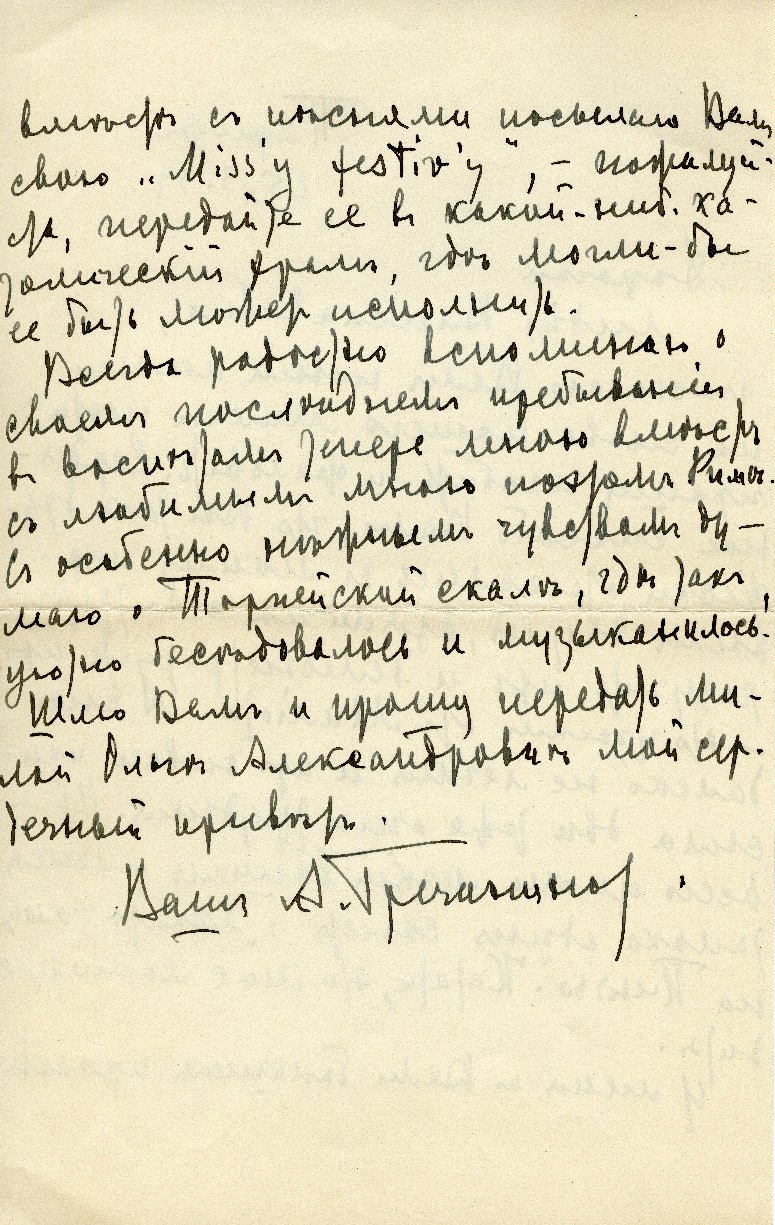 вмѣстѣ съ пѣснями посылаю Вамъ
свою „Miss'у festiv'у", – пожалуй-
ста, передайте ее въ какой-ниб. ка-
толическій храмъ, гдѣ могли-бы
ее быть можетъ исполнить.
Всегда радостно вспоминаю о
своемъ послѣднемъ пребываніи
въ воспѣтомъ теперь мною вмѣстѣ
съ любимымъ мною поэтомъ Римѣ.
Съ особенно нѣжнымъ чувствомъ ду-
маю о Тарпейской скалѣ, гдѣ такъ
уютно бесѣдовалось и музыканилось.
Шлю Вамъ и прошу передать ми-
лой Ольгѣ Александровнѣ мой сер-
дечный привѣтъ.
Вашъ А. Гречаниновъ.